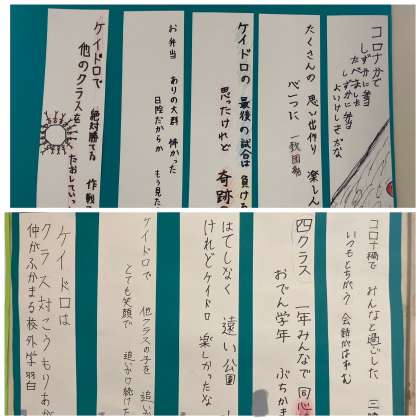 コロナかで
しずかに弁当
たべました
しずかに弁当
よいけしきだな
たくさんの 思い出作り 楽しん
べ一つに 一致団結
ケイドロの 最後の試合は 負ける
思ったけれど 奇跡
お弁当 ありの大群 怖かった
日陰だからか もう見た
ケイドロで 絶対勝てる 作戦
他のクラスを たおしていっ
コロナ禍で みんなと過ごした 三
いつもとちがう 会話がはずむ
四クラス 一年みんなで 回
おでん学年 ぶちか
はてしなく 遠い公園
けれどケイドロ 楽しかったな
ケイドロで 他クラスの子を 追い
とても笑顔で 追いかけ続けた
ケイドロは
クラス対こうもりあが
仲がふかまる校外学習